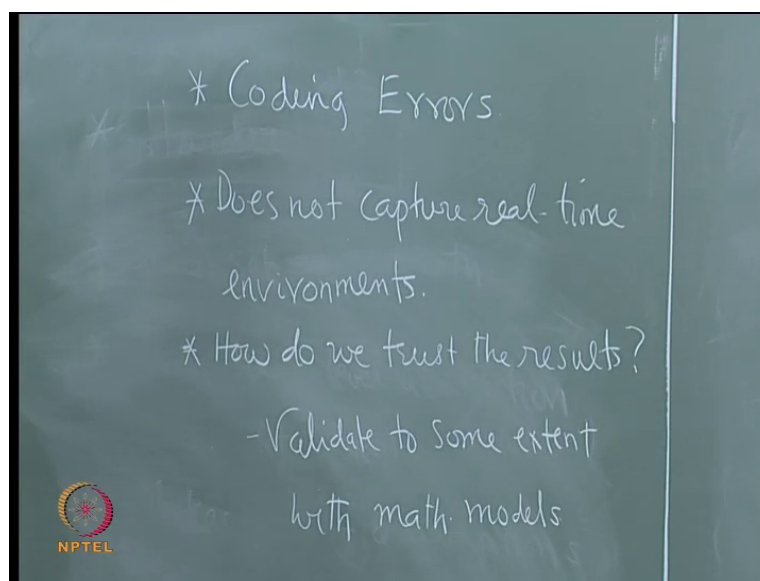 * Coding Errors.
* Does not capture real-time
environments.
* How do we trust the results?
- Validate to some extent
with math. models
NPTEL